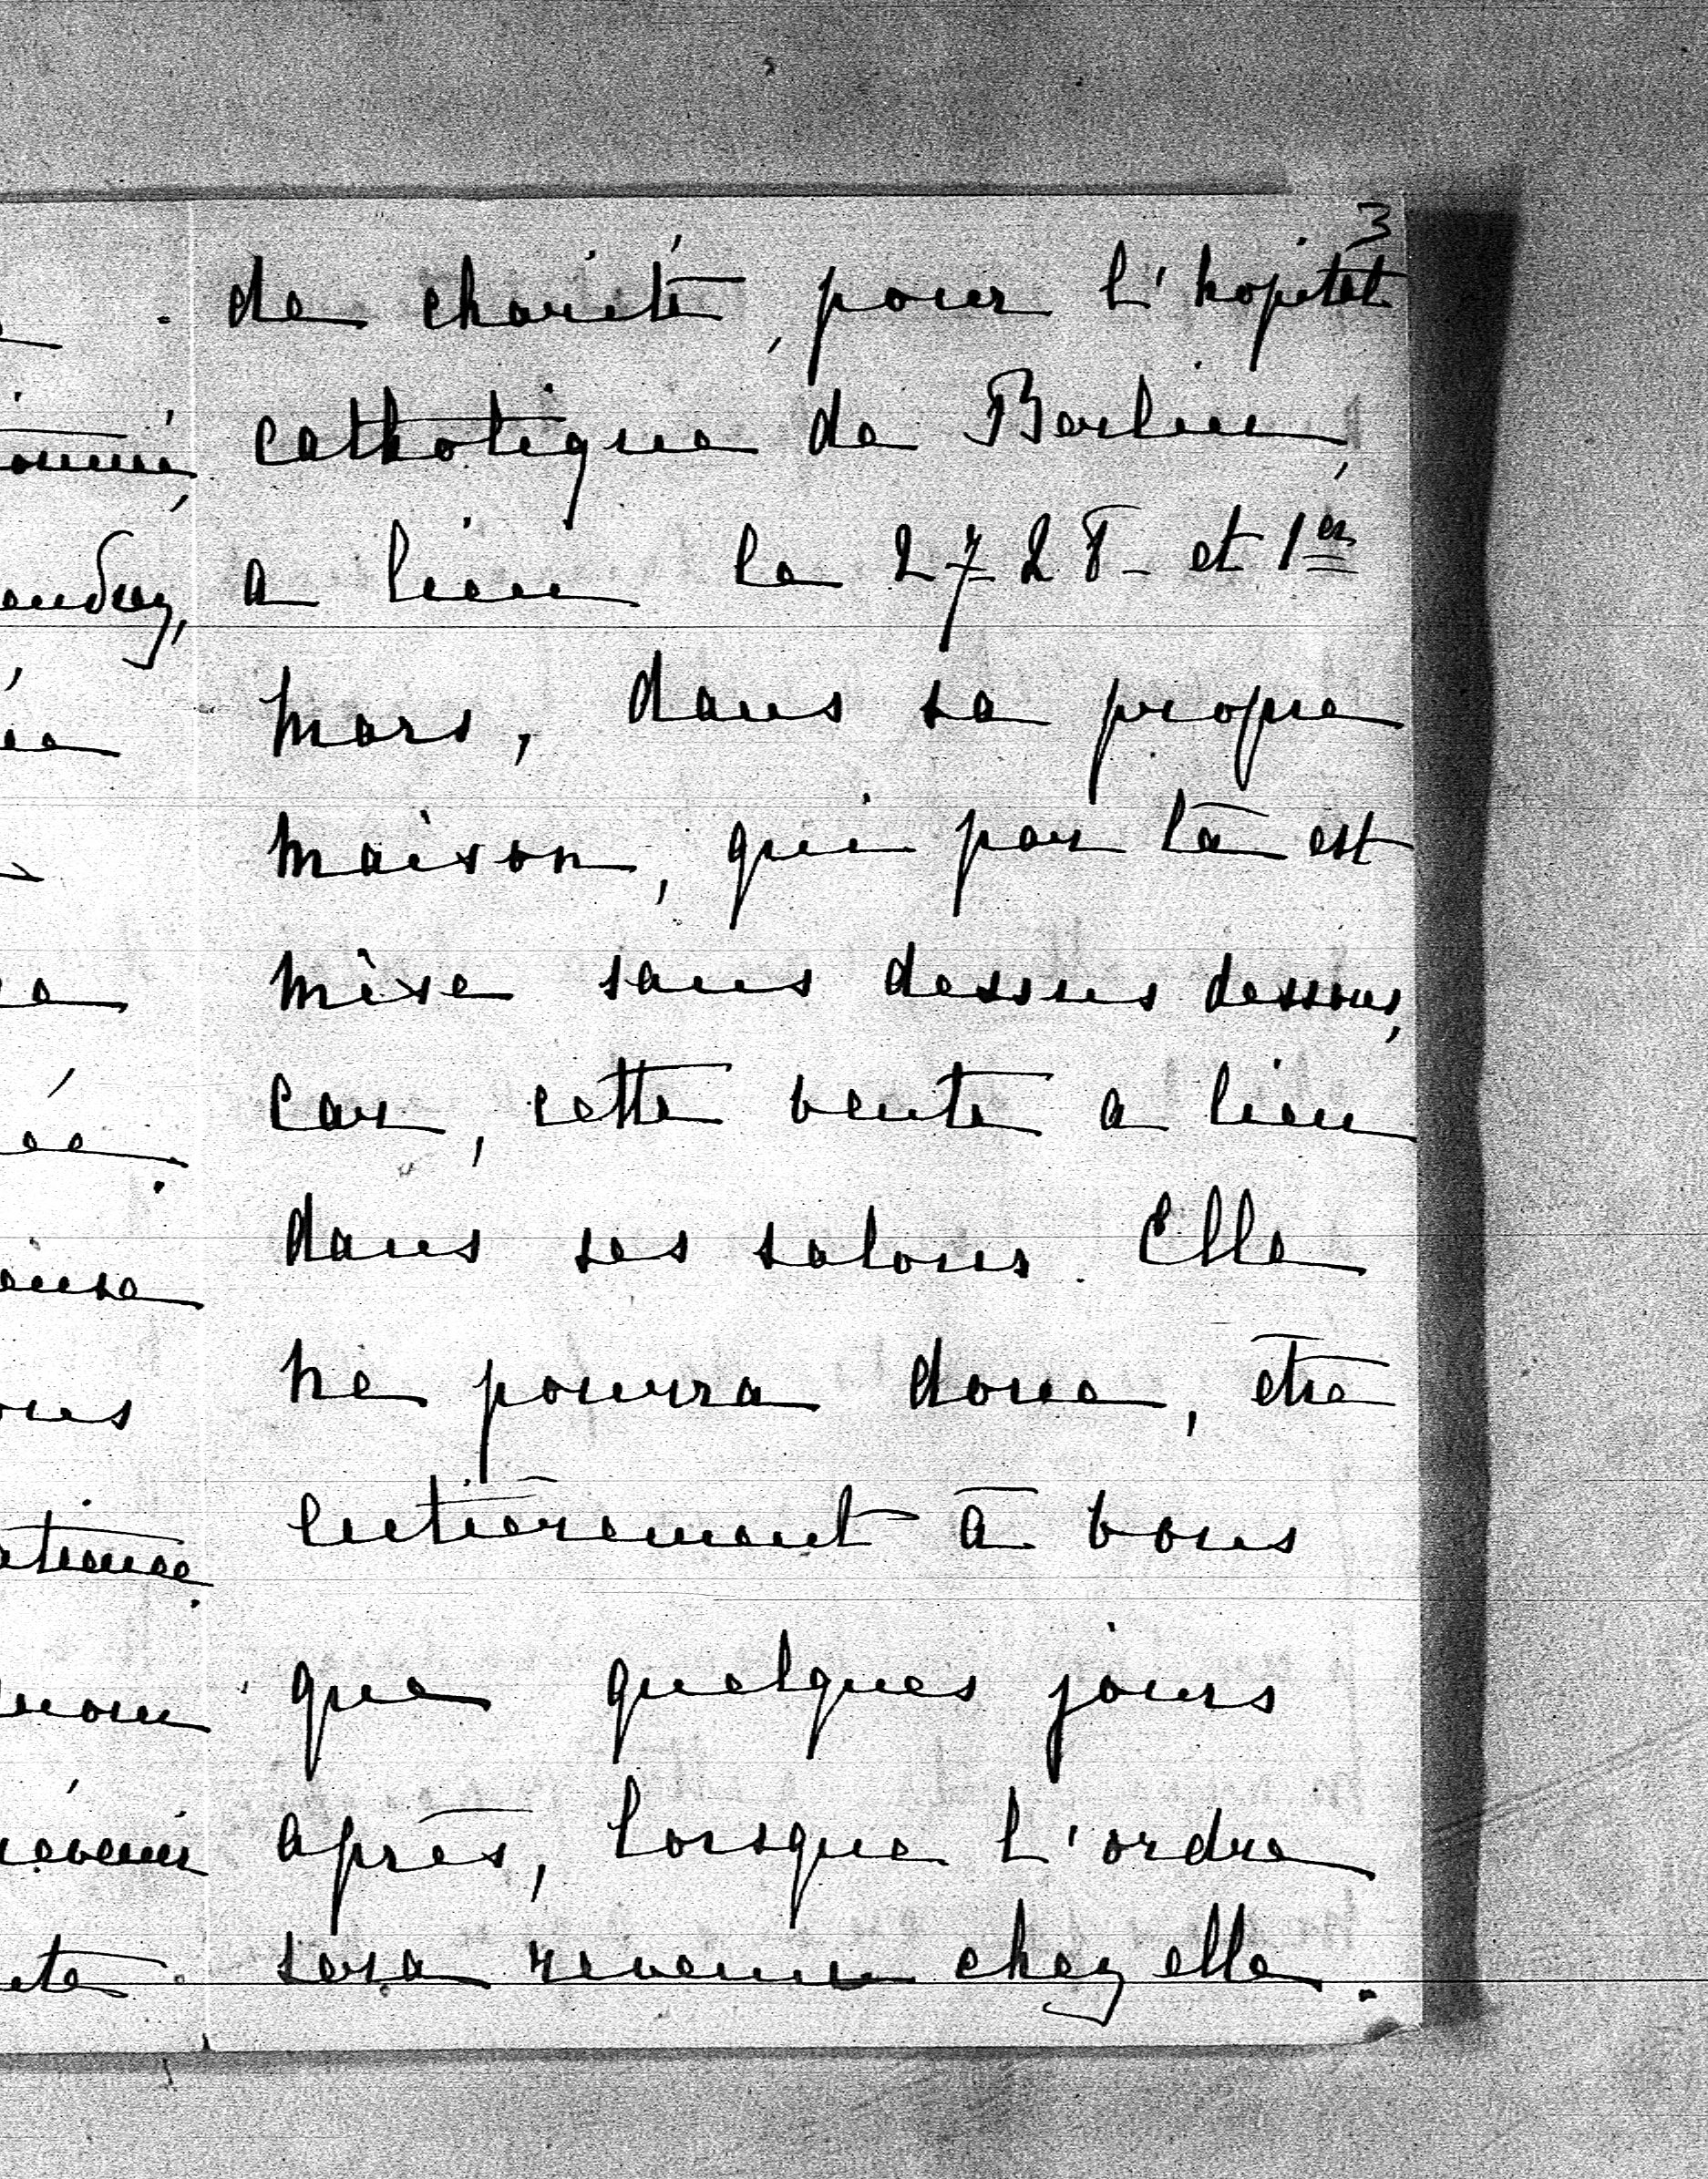 3
de charité, pour l'hopital
catholique de Berlin,
a lieu le 27 28 - et 1er
mars, dans sa propre
maison, qui par là est
mise sans dessus dessous,
car, cette vente a lieu
dans ses salons. Elle
ne pourra donc, être
entièrement à vous
que quelques jours
après, lorsque l'ordre
sera revenu chez elle.